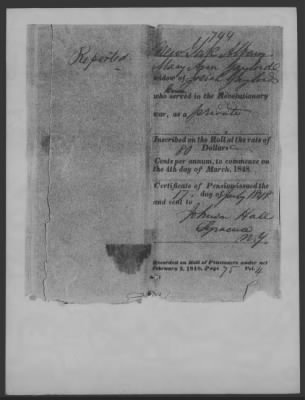 1794
Reported
New York Albany
Mary Ann Gaylord
widow of Josiah Gaylord
who served in the Revolutionary
war, as a private
Inscribed on the Roll at the rate of
80 Dollars
Cents per annum, to commence on
the 4th day of March, 1848.
Certificate of Pension issued the
17 day of July 1848
and sent to
Johnson Hall
Syracuse
N.Y.
Recorded on Roll of Pensioners under act
February 2, 1848, Page 75 Vol. 4